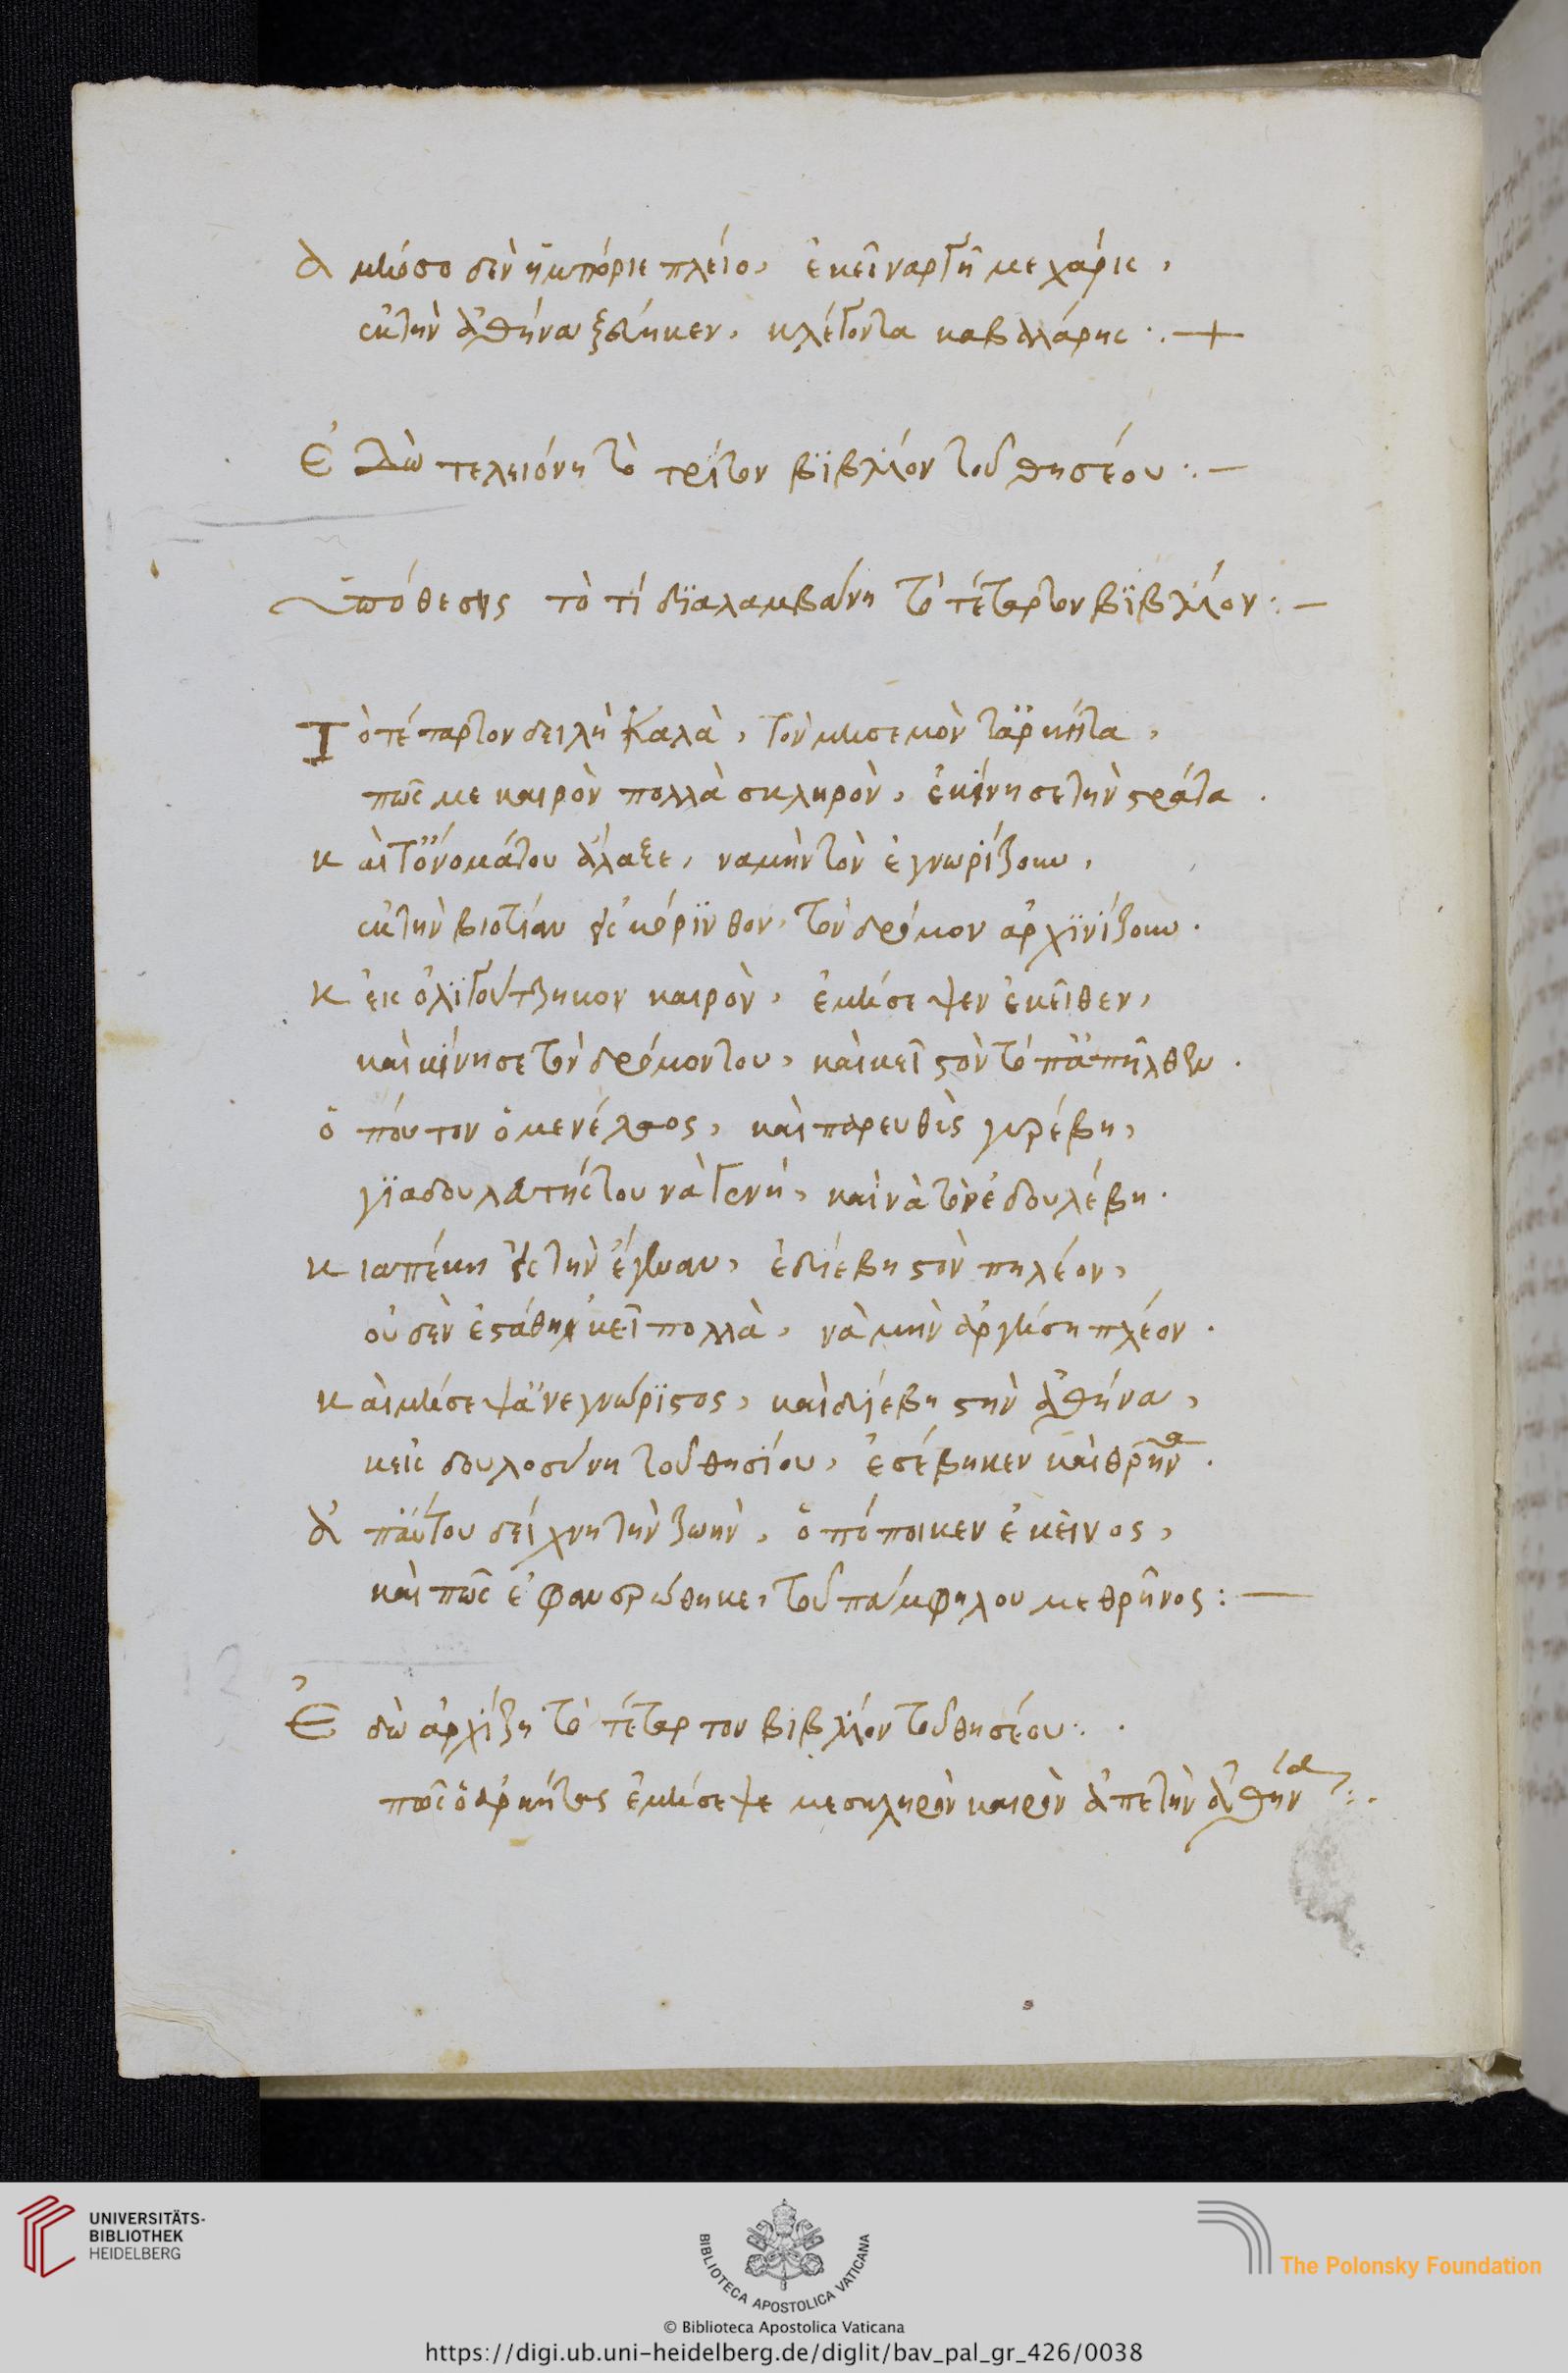 ἀ μισόσο δὲν ἠμπόριε πλείο, ἐκεῖ ναργῆ με χάρις,
ἐκ τὴν ἀθήνα ξέβηκεν, κλέγοντα καβαλάρης :· —+
Ἐ δὼ τελειόνη τὸ τρίτον βϊβλΐον τοῦ θησέου :· —
ὑπόθεσις τὸ τί δϊαλαμβάνη τὸ τέταρτον βϊβλΐον :· —
Τ ὸ τέταρτον δειλῆ καλὰ, τὸν μισεμὸν τἀρκήτα,
πῶς με καιρὸν πολλὰ σκληρὸν, ἐκίνησε τὴν στράτα .
κ αὶ τὄνομάτου ἄλαξε, να μὴν τὸν ἐγνωρίζουν,
ἐκ τὴν βιοτίαν εἰς κόρϊνθον, τὸν δρόμον ἀρχϊνίζουν .
κ εἰς ὀλϊγούτζηκον καιρὸν, ἐμίσεψεν ἐκεῖθεν,
καὶ κίνησε τὸν δρόμον του, καὶ κεῖ στὸν τόπἄπῆλθεν .
ὁ πόυτον ὁ μενέλαος, καὶ παρευθὺς γυρέβη,
γϊα δουλατήςτου νὰ γενῆ, καὶ νὰ τὸν ἐδουλέβη .
κ ιαπέκη εἰς τὴν ἔγιναν, ἐδιέβη στὸν πηλέον,
οὐδὲν ἐστάθην κεῖ πολλὰ, νὰ μὴν ἀργίση πλέον .
κ αὶ μίσεψἄ νεγνώρϊστος, καὶ διέβη στὴν ἀθήνα,
κεἰς δουλοσύνη τοῦ θησΐου, ἐσέβηκεν καὶ θρῆνα .
ἀ πἄύτου δείχνη τὴν ζωὴν, ὁπόποικεν ἐκεῖνος,
καὶ πῶς ἐφανερώθηκε, τοῦ πάμφηλου με θρῆνος : —
Ἐ δὼ ἀρχίζη τὸ τέταρτον βιβλΐον τοῦ θησέου . .
πῶς ὁ ἀρκήτας ἐμίσεψε με σκληρὸν καιρὸν ἀπε τὴν ἀθήνα :·
UNIVERSITÄTS-
BIBLIOTHEK
HEIDELBERG
BIBLIOTECA APOSTOLICA VATICANA
The Polonsky Foundation
© Biblioteca Apostolica Vaticana
https://digi.ub.uni-heidelberg.de/diglit/bav_pal_gr_426/0038